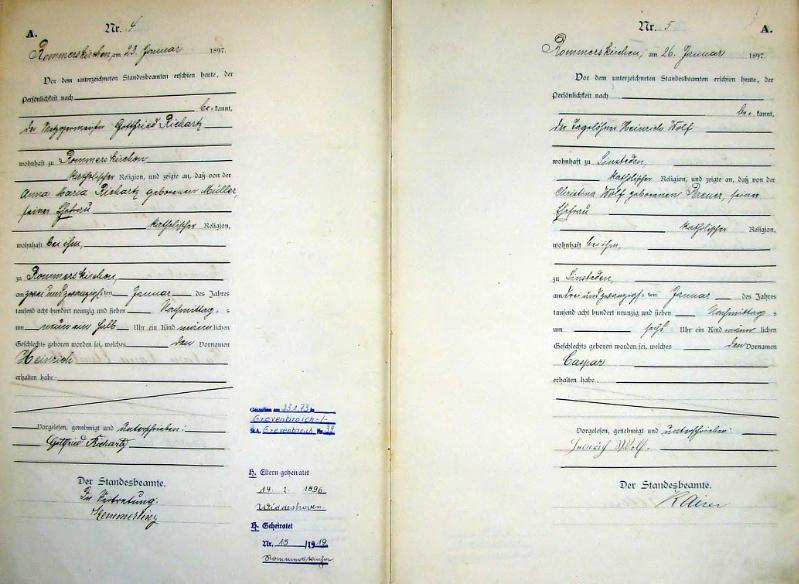 A.
Nr. 4
Rommerskirchen, am 23. Januar 1897.
Vor dem unterzeichneten Standesbeamten erschien heute, der
Persönlichkeit nach
be= kannt,
der Metzgermeister Gottfried Richartz
wohnhaft zu Rommerskirchen,
katholischer Religion, und zeigte an, daß von der
Anna Maria Richartz geborenen Müller,
seiner Ehefrau
katholischer Religion,
wohnhaft bei ihm,
zu Rommerskirchen,
am zwei und zwanzigsten Januar des Jahres
tausend acht hundert neunzig und sieben Nachmittag=s
um neun ein halb Uhr ein Kind männlichen
Geschlechts geboren worden sei, welches den Vornamen
Heinrich
erhalten habe.
Vorgelesen, genehmigt und unterschrieben:
Gottfried Richartz
Der Standesbeamte.
In Vertretung:
Hemmerling
am 23.1.73 in
Grevenbroich-1-
St.A. Grevenbroich Nr. 38
H. Eltern geheiratet
14. 1. 1896
Widdeshoven
H. Geheiratet
Nr. 15 /1919
Rommerskirchen
Nr. 5
A.
Rommerskirchen, am 26. Januar 1897.
Vor dem unterzeichneten Standesbeamten erschien heute, der
Persönlichkeit nach
be= kannt,
der Tagelöhner Heinrich Wolf
wohnhaft zu Sinsteden,
katholischer Religion, und zeigte an, daß von der
Christina Wolf geborenen seiner
Ehefrau
katholischer Religion,
wohnhaft bei ihm,
zu Sinsteden,
am drei und zwanzigsten Januar des Jahres
tausend acht hundert neunzig und sieben Nachmittag=s
um sechs Uhr ein Kind männlichen
Geschlechts geboren worden sei, welches den Vornamen
Caspar
erhalten habe.
Vorgelesen, genehmigt und unterschrieben:
Heinrich Wolf.
Der Standesbeamte.
Kaiser